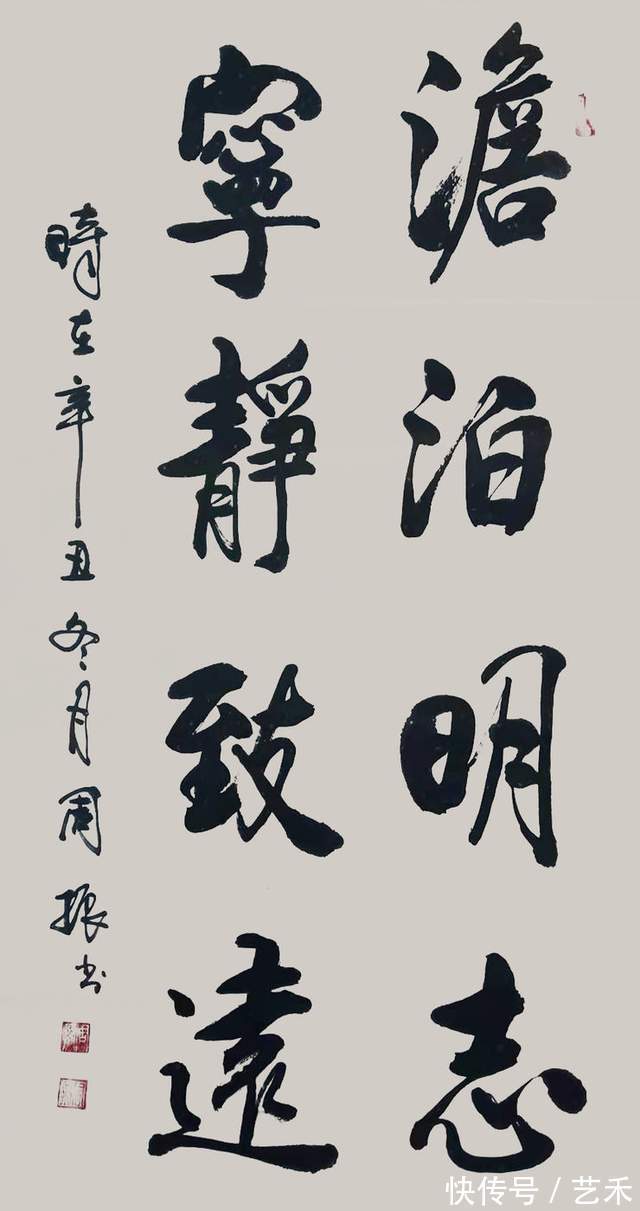 澹泊明志
寧靜致遠
時在辛丑冬月周振书
快传号/艺禾